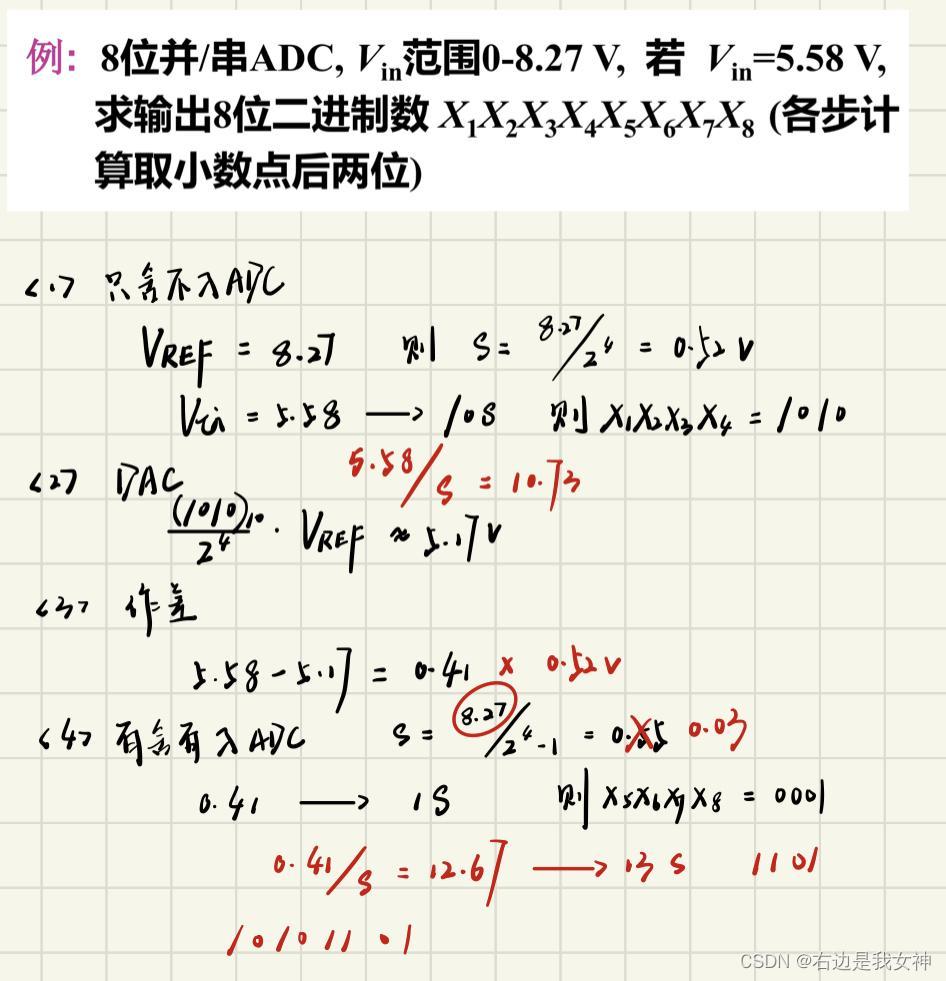 例: 8位并/串ADC, Vin范围0-8.27 V, 若 Vin=5.58 V,
求输出8位二进制数 X1X2X3X4X5X6X7X8 (各步计
算取小数点后两位)
<1> 只舍不入ADC
VREF = 8.27 则 S = 8.27/2^4 = 0.52 V
Vin = 5.58 → 10S 则 X1X2X3X4 = 1010
5.58/S = 10.73
<2> DAC
(1010)10/2^4 · VREF ≈ 5.17 V
<3> 作差
5.58 - 5.17 = 0.41 × 0.52 V
<4> 有舍有入ADC S = 8.27/2^4-1 = 0.55 0.03
0.41 → 1S 则 X5X6X7X8 = 0001
0.41/S = 12.67 → 13 S 1101
10101101
CSDN @右边是我女神